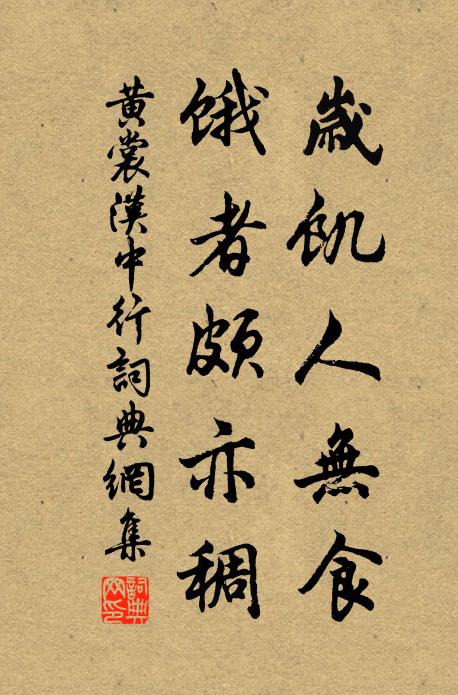 歲飢人無食
餓者頗亦稠
黃裳漢中行詞典網集
詞典網印